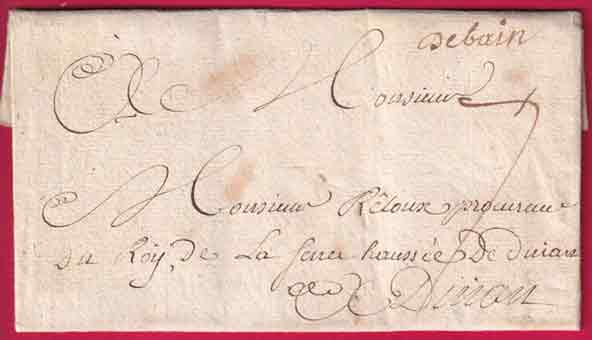 Debain
A Monsieur
Monsieur Rêtoux procureur
du Roy, de La Senechaussée De dinan
A Dinan